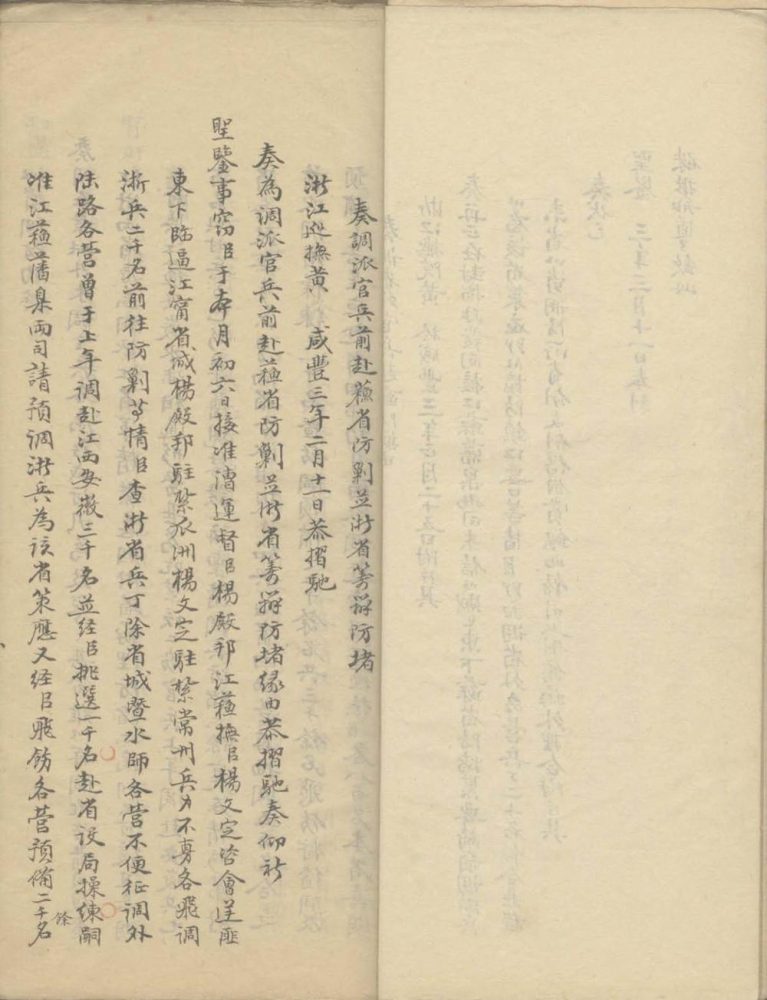 奏調派官兵前赴蘓省防剿並浙省筹辦防堵
浙江巡撫黃 咸豐三年二月十一日恭摺馳
奏為调派官兵前赴蘓省防剿並浙省筹辦防堵缘由恭摺馳奏仰祈
聖鑒事窃臣于本月初六日接准漕運督臣楊殿邦江蘓撫臣楊文定咨會逆匪
東下臨逼江甯省城楊殿邦駐紮瓜洲楊文定駐紮常州兵力不旉各飛调
浙兵二千名前往防剿等情臣查浙省兵丁除省城暨水師各营不便征调外
陆路各营曾于上年调赴江西安徽三千名並经臣挑選一千名赴省设局操練嗣
准江蘓藩臬兩司請預调浙兵為该省策應又经臣飛飭各营預備二千名
餘